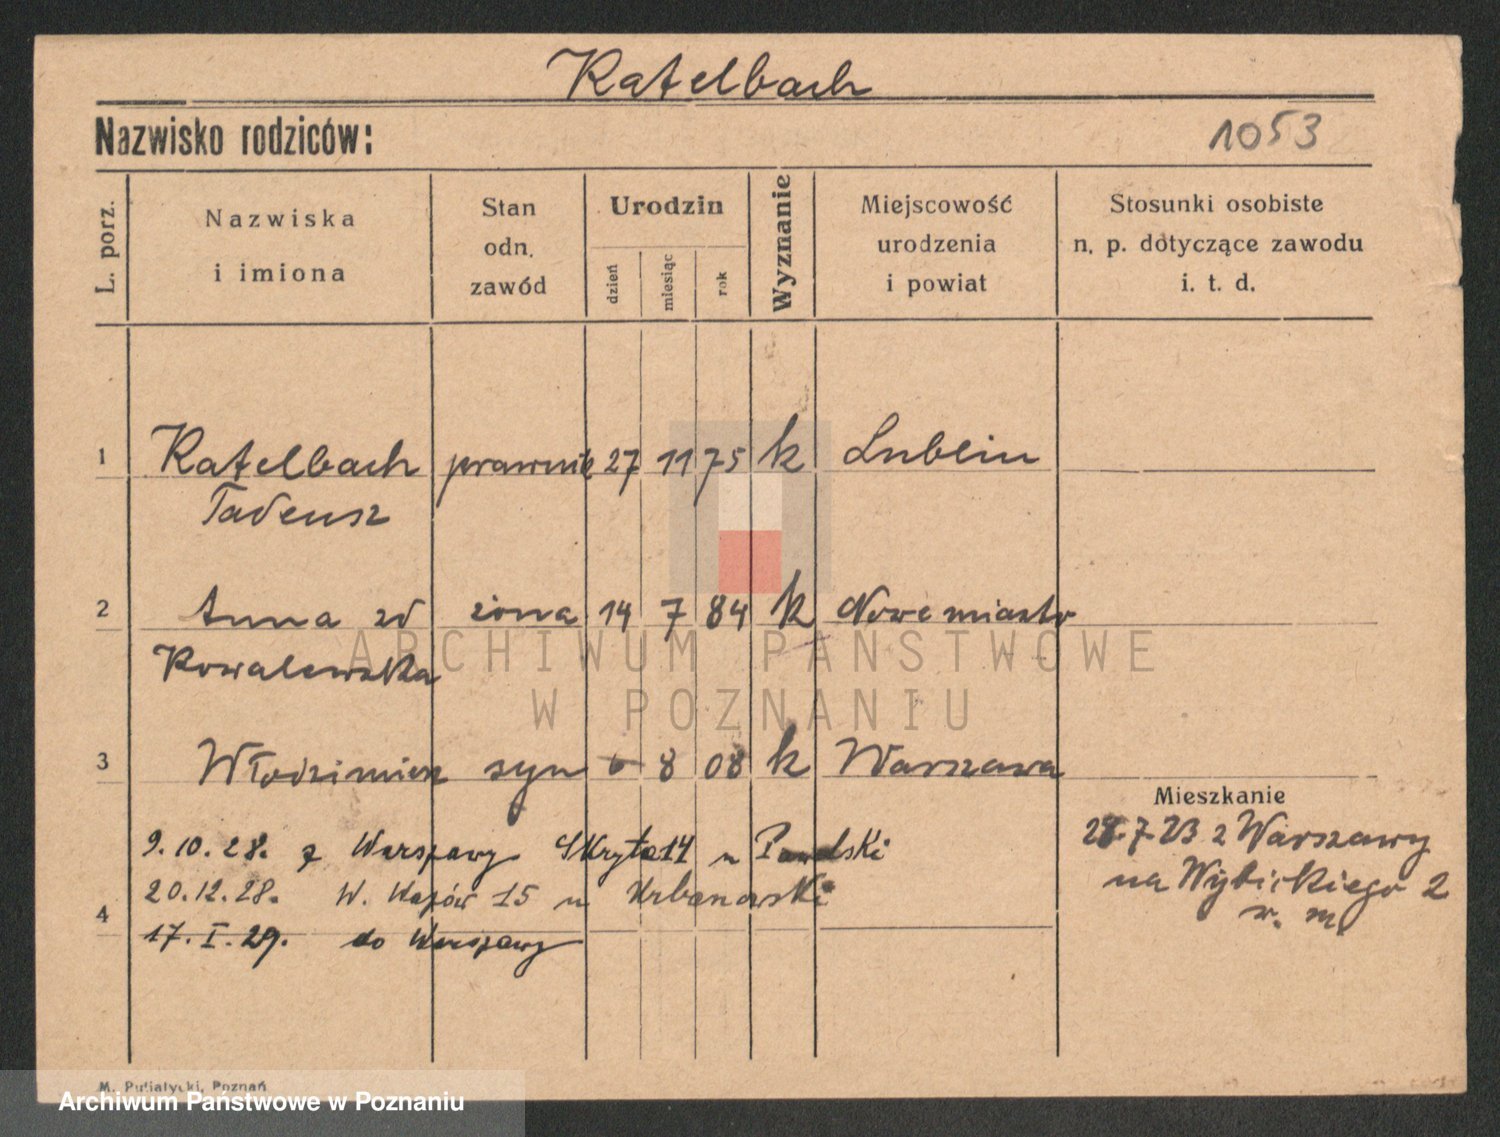 Katelbach
Nazwisko rodziców:
1053
L. porz.
Nazwiska
i imiona
Stan
odn.
zawód
Urodzin
dzień
miesiąc
rok
Wyznanie
Miejscowość
urodzenia
i powiat
Stosunki osobiste
n. p. dotyczące zawodu
i. t. d.
1 Katelbach prawnik 27 11 75 k Lublin
Tadeusz
2 Anna zd żona 14 7 84 k Nowe miasto
Kowalewska
3 Włodzimierz syn 6 8 08 k Warszawa
Mieszkanie
28.7.23 z Warszawy
na Wybickiego 2
w. m.
9.10.28. z Warszawy Skryta 14 u
20.12.28. W. 15 u Urbanowski
4
17.I.29. do Warszawy
M. Putiatycki, Poznań
ARCHIWUM PAŃSTWOWE
W POZNANIU
Archiwum Państwowe w Poznaniu